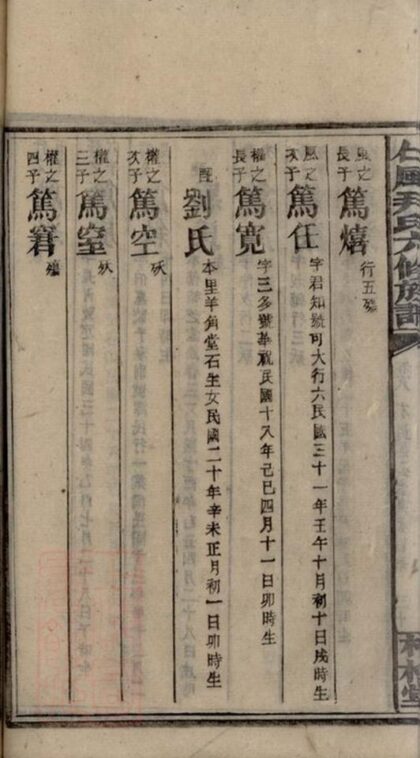 風之長子 篤熺 行五殤
風之次子 篤任 字君知號可大行六民國三十一年壬午十月初十日戌時生
權之長子 篤寬 字三多號華祝民國十八年己巳四月十一日卯時生
配 劉氏 本里羊角堂石生女民國二十年辛未正月初一日卯時生
權之次子 篤空 殀
權之三子 篤室 殀
權之四子 篤窘 殤